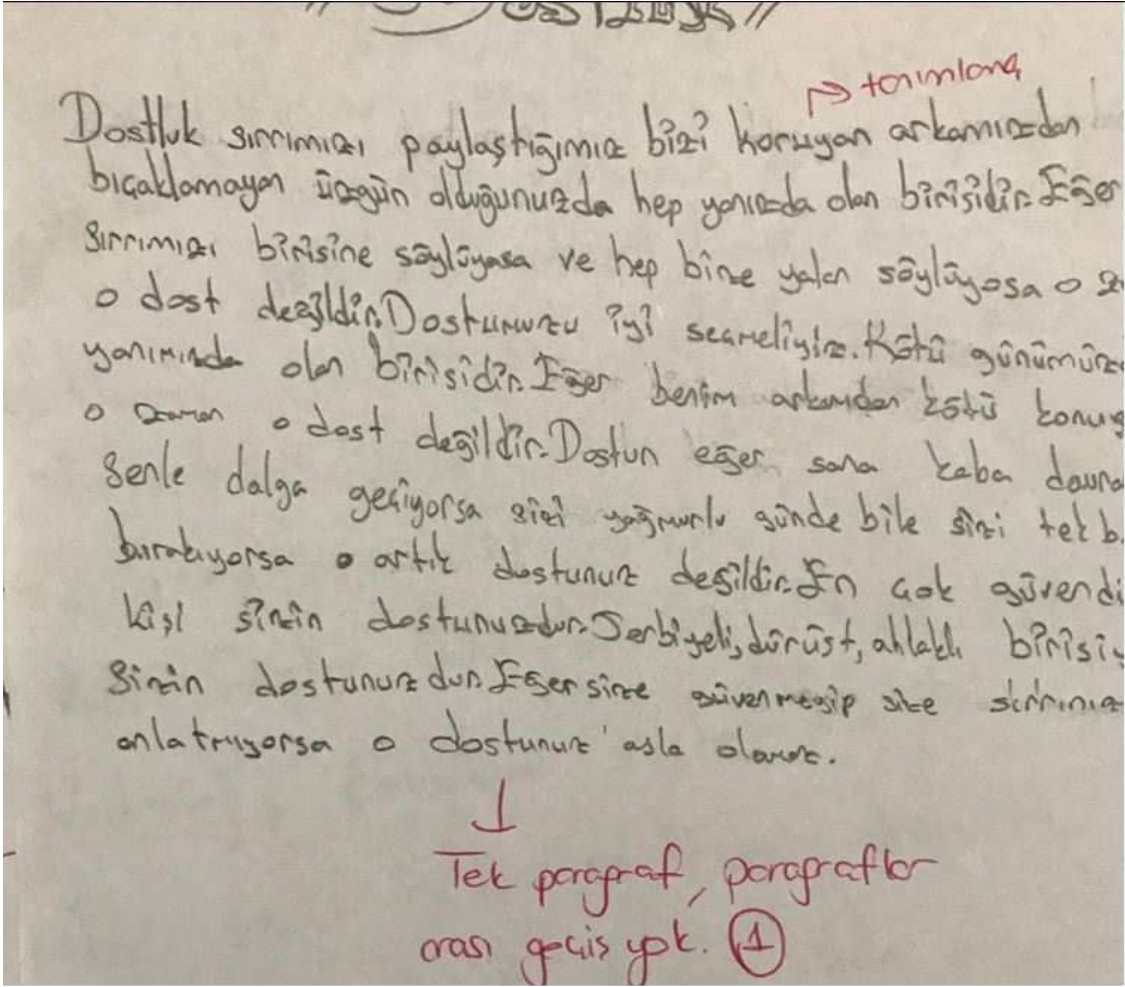 "DOSTLUK"
→ tanımlama
Dostluk sırrımızı paylaştığımız bizi koruyan arkamızdan
bıçaklamayan üzgün olduğunuzda hep yanızda olan birisidir. Eğer
sırrımızı birisine söylüyasa ve hep bize yalan söylüyosa o
o dost değildir. Dostumuzu iyi seçmeliyiz. Kötü günümüz
yanımında olan birisidir. Eğer benim arkamdan kötü konuş
o zaman o dost değildir. Dostun eğer sana kaba davra
senle dalga geçiyorsa sizi yağmurlu günde bile sizi tek b
bırakıyorsa o artık dostunuz değildir. En çok güvendi
kişi sizin dostunuzdur. Terbiyeli, dürüst, ahlaklı birisi
sizin dostunuzdur. Eğer size güvenmeyip size sırrınız
anlatmıyorsa o dostunuz asla olamaz.
↓
Tek paragraf, paragraflar
arası geçiş yok. 1